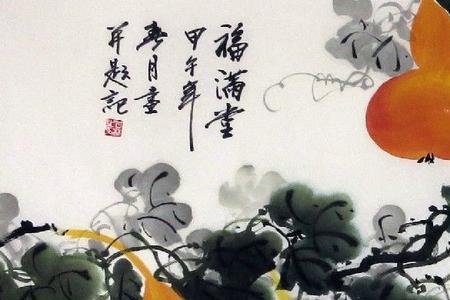 福滿堂
甲午年
春月畫
并題記